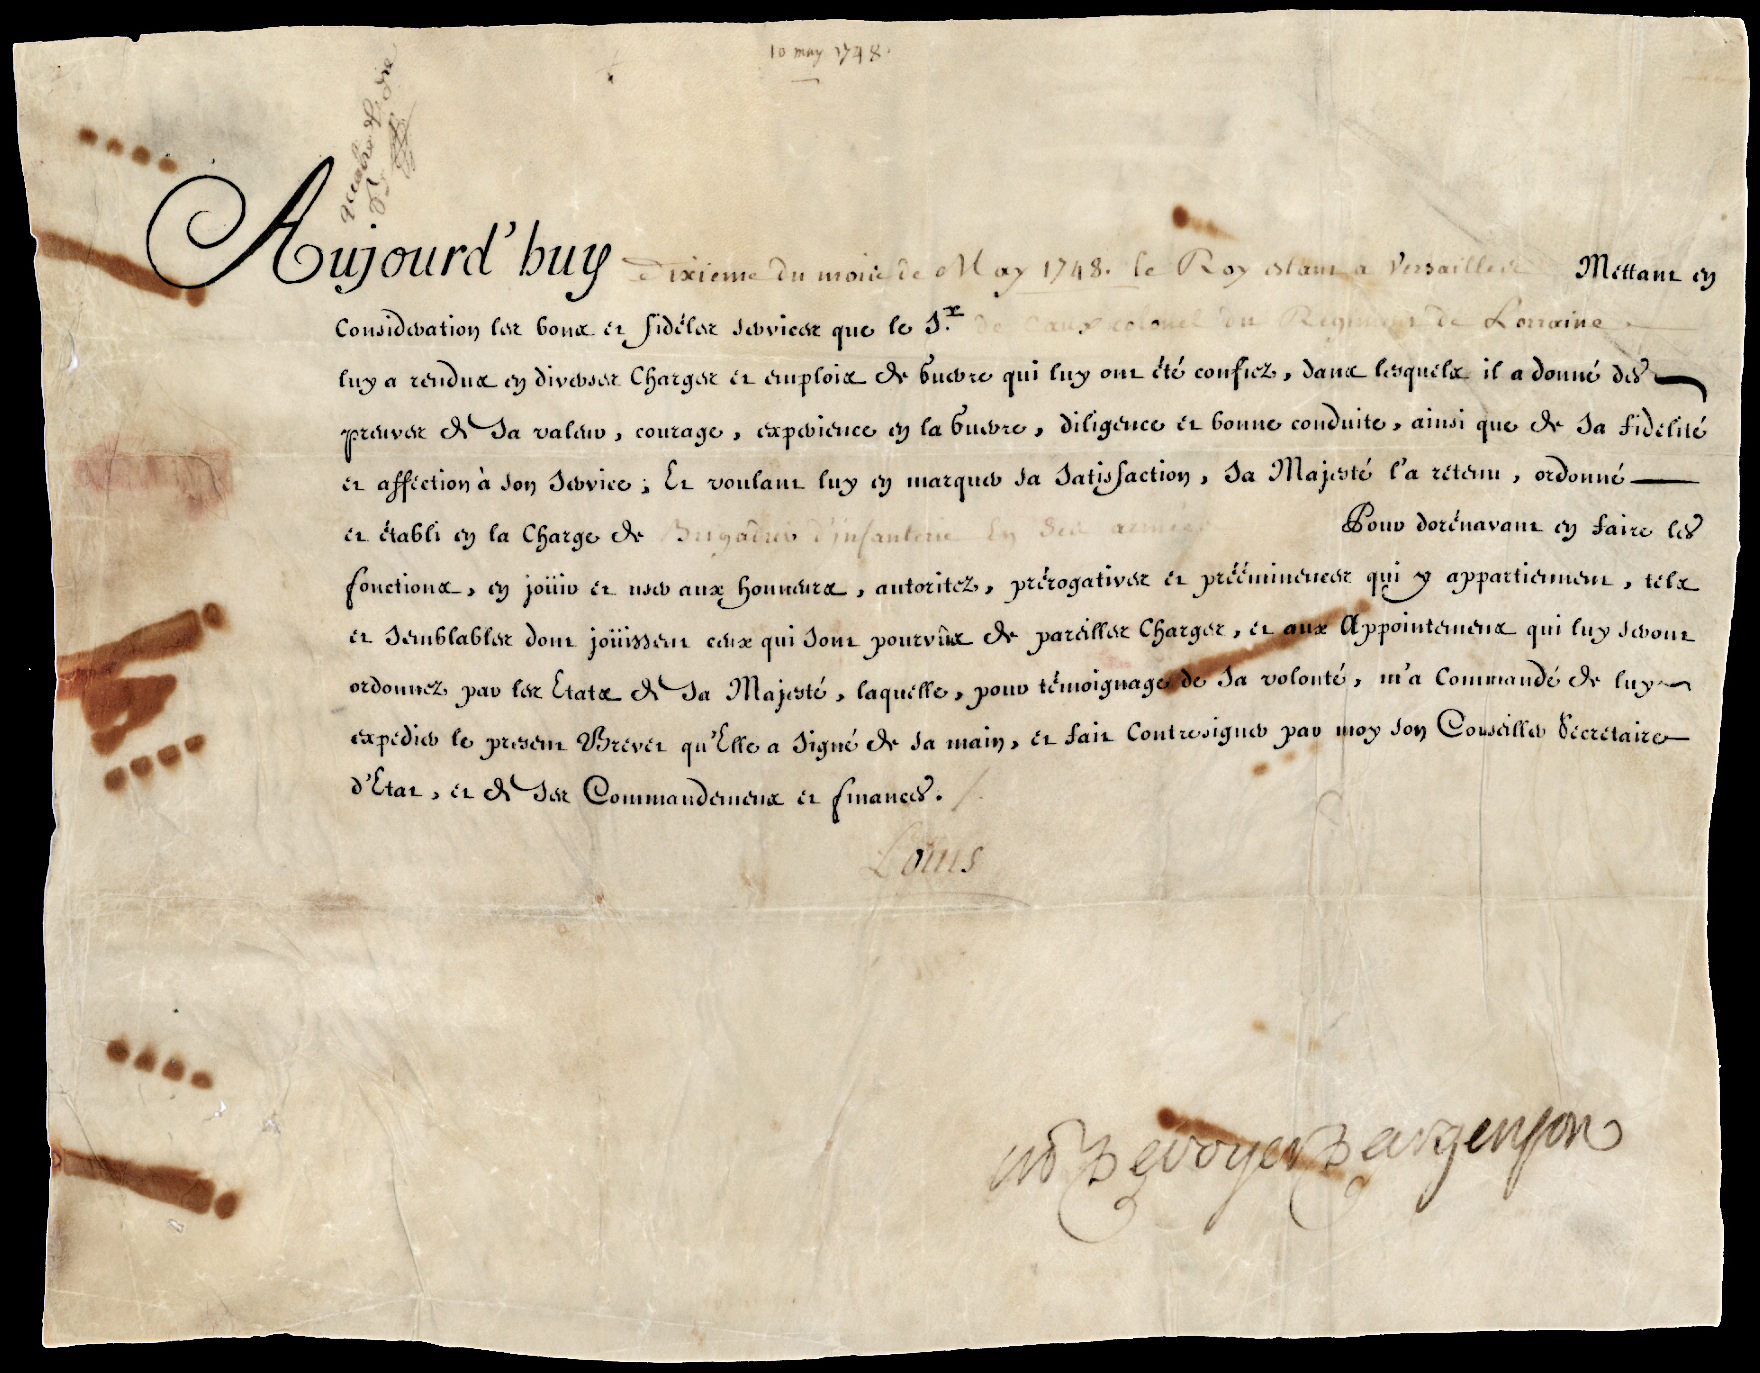 10 may 1748.
Aujourd'huy dixieme du mois de May 1748. le Roy estant a Versailles Mettant en
Consideration les bons et fidéles services que le S.r de Caux colonel du Regiment de Lorraine
luy a rendus en diverses Charges et emplois de Guerre qui luy ont été confiez, dans lesquels il a donné des
preuves de Sa valeur, courage, experience en la Guerre, diligence et bonne conduite, ainsi que de Sa fidélité
et afféction à son Service; Et voulant luy en marquer sa Satisfaction, Sa Majesté l'a retenu, ordonné
et établi en la Charge de Brigadier d'infanterie en Ses armées Pour dorénavant en faire les
fonctions, en joüir et user aux honneurs, autoritez, prérogatives et prééminences qui y appartiennent, tels
et Semblables dont joüissent ceux qui sont pourvûs de pareilles Charges, et aux Appointemens qui luy seront
ordonnez par les Etats de Sa Majesté, laquelle, pour témoignage de Sa volonté, m'a Commandé de luy
expedier le present Brevet qu'Elle a Signé de sa main, et fait Contresigner par moy son Conseiller Sécrétaire
d'Etat, et de Ses Commandemens et finances.
Louis
De voyer D'argenson